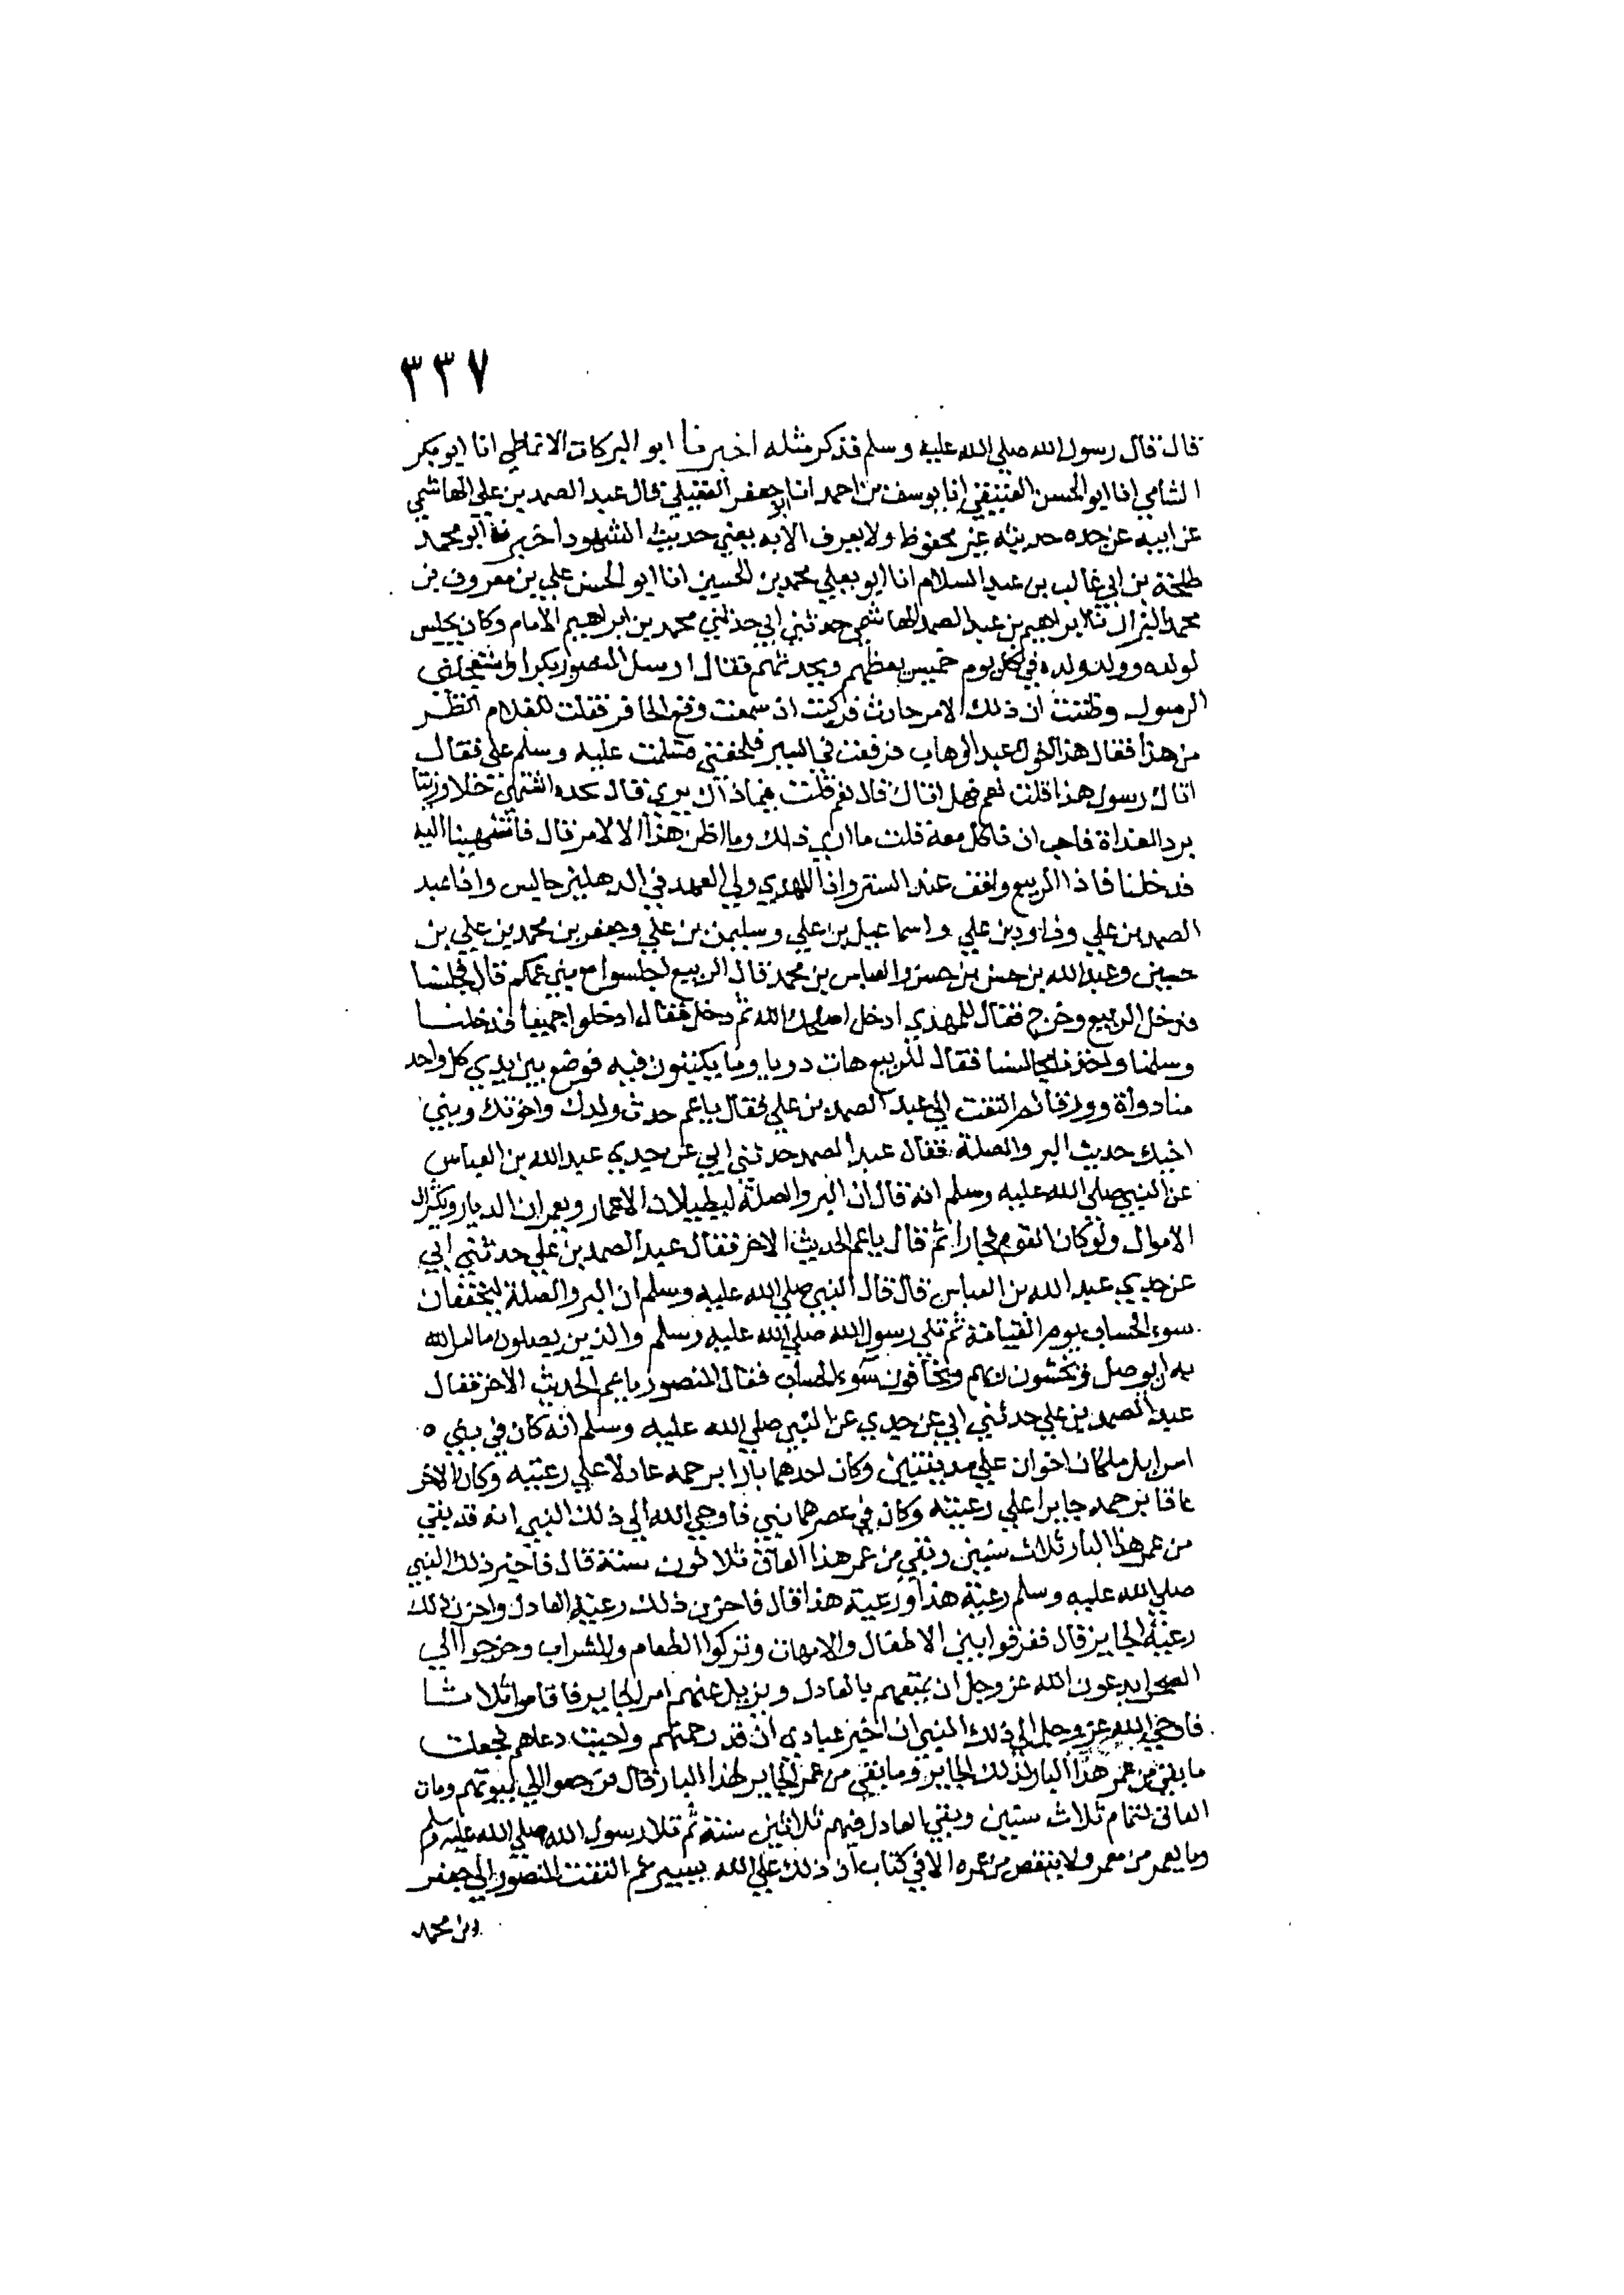 ٣٣٧
قال قال رسول الله صلي الله عليه وسلم فذكر مثله اخبرنا ابو البركات الانماطي انا ابو بكر
الشامي انا ابو الحسن العتيقي انا يوسف بن احمد انا ابو جعفر العقيلي قال عبد الصمد بن علي الهاشمي
عن ابيه عن جده حديثه غير محفوظ ولا يعرف الا به يعني حديث الشهود اخبرنا ابو محمد
طلحة بن ابي غالب بن عبد السلام انا ابو يعلي محمد بن الحسين انا ابو الحسن علي بن معروف بن
محمد البزاز نا ابراهيم بن عبد الصمد الهاشمي حدثني ابي حدثني محمد بن ابراهيم الامام وكان يجلس
لولده وولد ولده في كل يوم خميس يعظهم ويحدثهم فقال ارسل المنصور بكرا واستعجلني
الرسول وظننت ان ذلك لامر حادث فركبت اذ سمعت وقع الحافر فقلت للغلام انظر
من هذا فقال هذا اخوك عبد الوهاب فرفعت في السير فلحقني فسلمت عليه وسلم علي فقال
اتاك رسول هذا قلت نعم فهل اتاك قال نعم قلت فيما ذاك يري قال تجده اشتهي خلا وزيتا
برد الغداة فاحب ان ناكل معه قلت ما اري ذلك وما اظن هذا الا لامر قال فانتهينا اليه
فدخلنا فاذا الربيع واقف عند الستر واذا المهدي ولي العهد في الدهليز جالس واذا عبد
الصمد بن علي وداود بن علي واسماعيل بن علي وسليمن بن علي وجعفر بن محمد بن علي بن
حسين وعبد الله بن حسن بن حسن والعباس بن محمد قال الربيع اجلسوا مع بني عمكم قال فجلسنا
فدخل الربيع وخرج فقال للمهدي ادخل اصلحك الله ثم دخل فقال ادخلوا جميعا فدخلنا
وسلمنا واخذنا مجالسنا فقال للربيع هات دويا وما يكتبون فيه فوضع بين يدي كل واحد
منا دواة وورقا ثم التفت الي عبد الصمد بن علي فقال يا عم حدث ولدك واخوتك وبني
اخيك حديث البر والصلة فقال عبد الصمد حدثني ابي عن جدي عبد الله بن العباس
عن النبي صلي الله عليه وسلم انه قال ان البر والصلة ليطيلان الاعمار ويعمران الديار ويكثران
الاموال ولو كان القوم فجارا ثم قال يا عم الحديث الاخر فقال عبد الصمد بن علي حدثني ابي
عن جدي عبد الله بن العباس قال قال النبي صلي الله عليه وسلم ان البر والصلة ليخففان
سوء الحساب يوم القيامة ثم تلي رسول الله صلي الله عليه وسلم والذين يصلون ما امر الله
به ان يوصل ويخشون ربهم ويخافون سوء الحساب فقال المنصور يا عم الحديث الاخر فقال
عبد الصمد بن علي حدثني ابي عن جدي عن النبي صلي الله عليه وسلم انه كان في بني ٥
اسرايل ملكان اخوان علي مدينتين وكان احدهما بارا برحمه عادلا علي رعيته وكان الاخر
عاقا برحمه جايرا علي رعيته وكان في عصرهما نبي فاوحي الله الي ذلك النبي انه قد بقي
من عمر هذا البار ثلاث سنين وبقي من عمر هذا العاق ثلاثون سنة قال فاخبر ذلك النبي
صلي الله عليه وسلم رعية هذا ورعية هذا قال فاحزن ذلك رعية العادل واحزن ذلك
رعية الجاير قال ففرقوا بين الاطفال والامهات وتركوا الطعام والشراب وخرجوا الي
الصحرا يدعون الله عز وجل ان يمتعهم بالعادل ويزيل عنهم امر الجاير فاقاموا ثلاثا
فاوحي الله عز وجل الي ذلك النبي ان اخبر عبادي ان قد رحمتهم واجبت دعاهم فجعلت
ما بقي من عمر هذا البار لذلك الجاير وما بقي من عمر الجاير لهذا البار قال فرجعوا الي بيوتهم ومات
العاق لتمام ثلاث سنين وبقي العادل فيهم ثلاثين سنة ثم تلا رسول الله صلي الله عليه وسلم
وما يعمر من معمر ولا ينقص من عمره الا في كتاب ان ذلك علي الله يسير ثم التفت المنصور الي جعفر
بن محمد